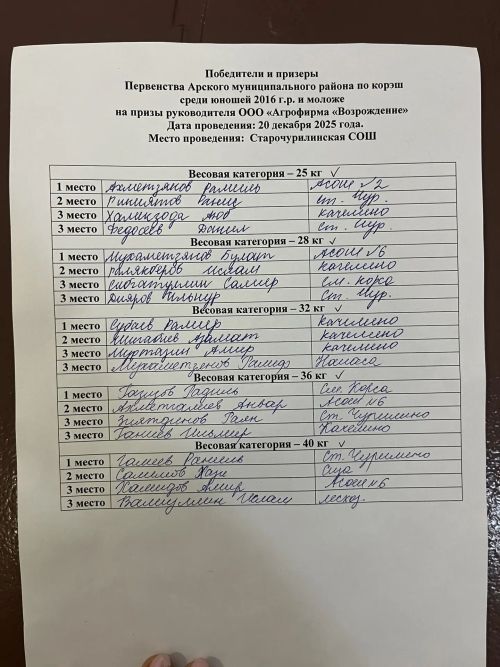 Победители и призеры
Первенства Арского муниципального района по корэш
среди юношей 2016 г.р. и моложе
на призы руководителя ООО «Агрофирма «Возрождение»
Дата проведения: 20 декабря 2025 года.
Место проведения: Старочурилинская СОШ
Весовая категория – 25 кг ✓
1 место Ахметзянов Рамиль АСОШ №2
2 место Ст. Чур.
3 место Хамизода Аюб Качелино
3 место Федосеев Данил Ст. Чур.
Весовая категория – 28 кг ✓
1 место Мухаметзянов Булат АСОШ №6
2 место Ислам Качелино
3 место Сибгатуллин Салават См. Корса
3 место Дияров Ильнур Ст. Чур.
Весовая категория – 32 кг ✓
1 место Субаев Качелино
2 место Азамат Качелино
3 место Муртазин Амир Качелино
3 место Мухаметзянов Наласа
Весовая категория – 36 кг ✓
1 место Газизов См. Корса
2 место Ахметгалиев Анвар АСОШ №6
3 место Зиятдинов Раян Ст. Чурилино
3 место Ганиев Ильмир Качелино
Весовая категория – 40 кг ✓
1 место Самеев Ст. Чурилино
2 место Сиза
3 место Хамидов Амир АСОШ №6
3 место Валиуллин Ислам Лесхоз.